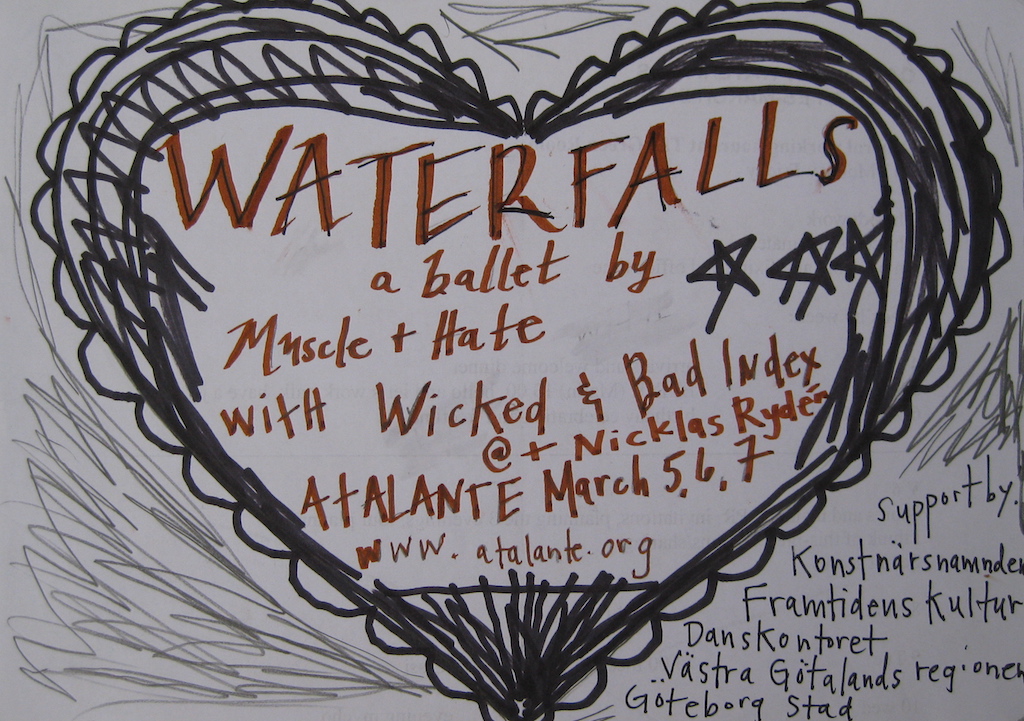 WATERFALLS
a ballet by
Muscle + Hate
with Wicked & Bad Index
@ + Nicklas Rydén
ATALANTE March 5, 6, 7
www.atalante.org
Support by:
Konstnärsnamnden
Framtidens Kultur
Danskontoret
Västra Götalands regionen
Göteborg Stad